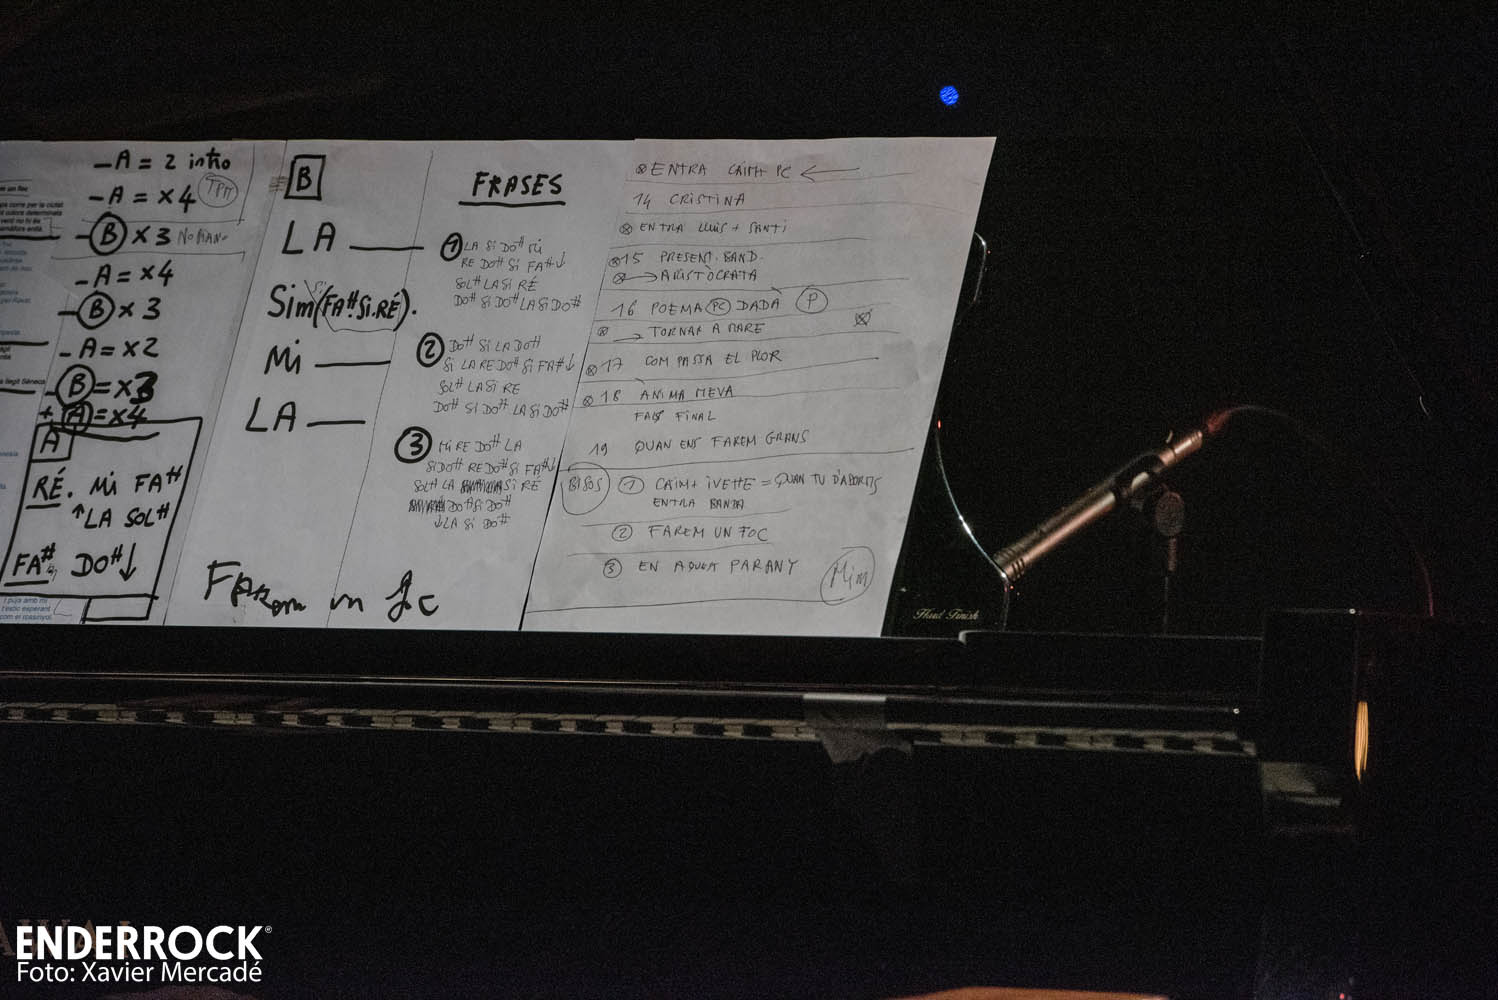 - A = 2 intro
- A = x4 TPM
- B x 3
- A = x4
- B x 3
- A = x2
- B = x3
+ A = x4
A
RÉ. Mi FA#
↑ LA SOL#
FA# DO# ↓
ui llegit Sèneca
B
LA
Sim (FA# Si.RÉ).
Mi
LA
Farem un foc
FRASES
1 LA Si DO# Mi
RE DO# Si FA# ↓
SOL# LA Si RÉ
DO# Si DO# LA Si DO#
2 DO# Si LA DO#
Si LA RE DO# Si FA# ↓
SOL# LA Si RE
DO# Si DO# LA Si DO#
3 Mi RE DO# LA
Si DO# RE DO# Si FA# ↓
SOL# LA Si RÉ
DO# Si DO#
↓ LA Si DO#
⊗ ENTRA CAÏM + PC ←
14 CRISTINA
⊗ ENTRA LLUÍS + SANTI
⊗ 15 PRESENT. BAND.
⊗ → ARISTÒCRATA
16 POEMA PC DADÀ P
⊗ → TORNAR A MARE
⊗ 17 COM PASSA EL PLOR
⊗ 18 ÀNIMA MEVA
FALS FINAL
19 QUAN ENS FAREM GRANS
BISOS 1 CAIM + IVETTE = QUAN TU
ENTRA BANDA
2 FAREM UN FOC
3 EN AQUEST PARANY Mim
ENDERROCK®
Foto: Xavier Mercadé